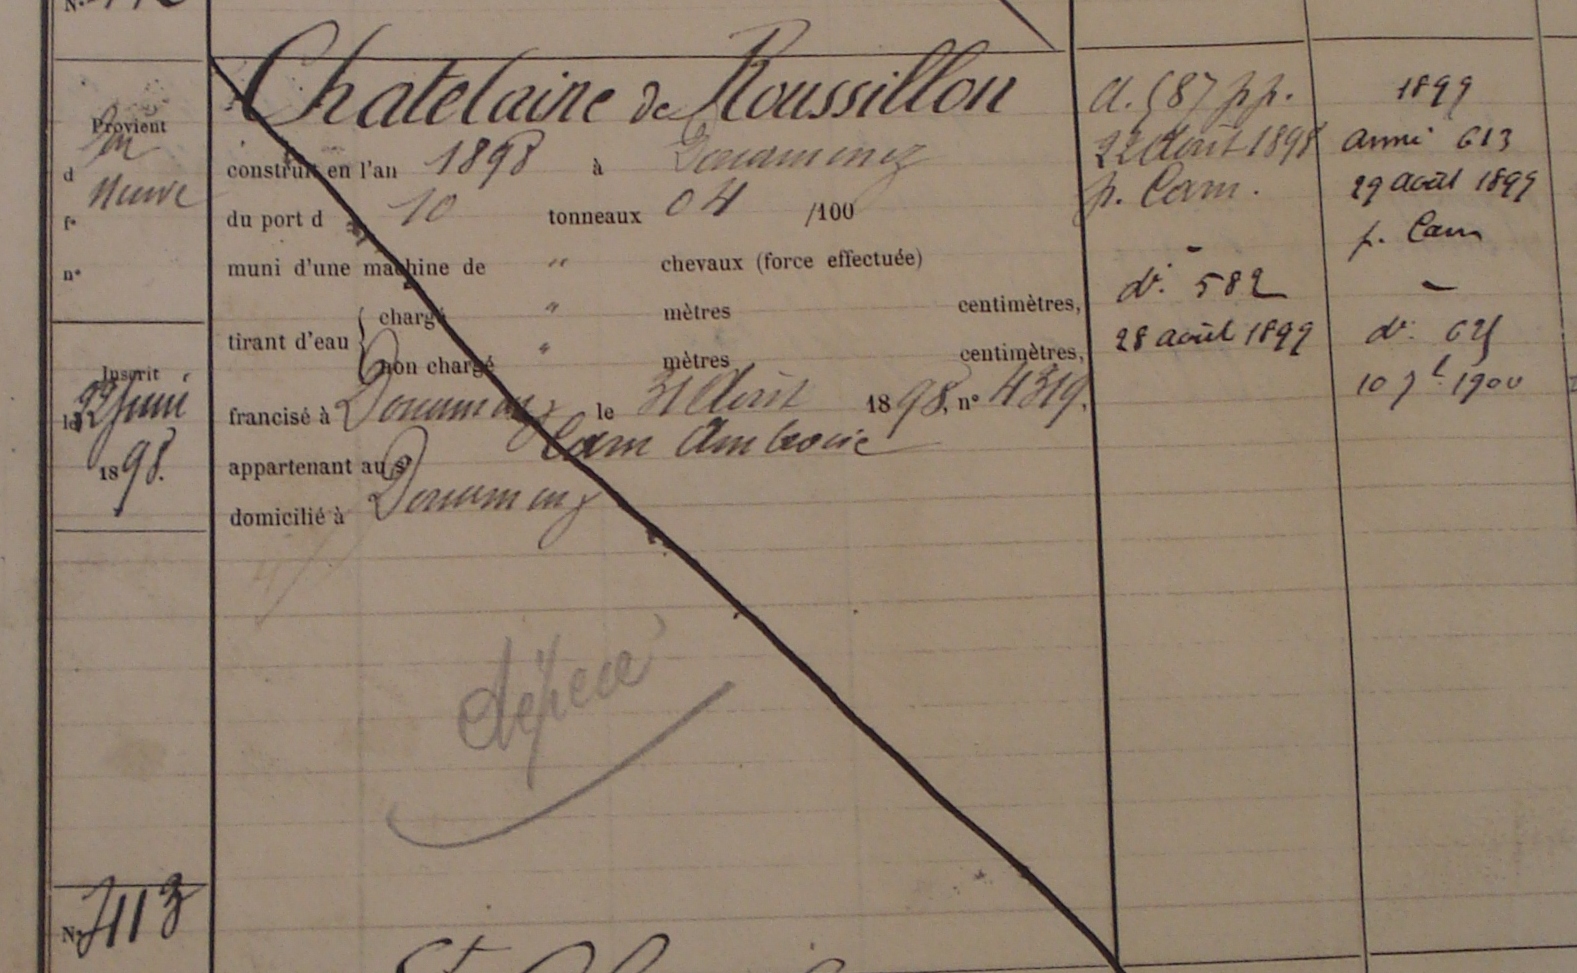 N.
Chatelaine de Roussillon
Provient
construit en l'an 1898 à Douarnenez
d Neuve
du port d 10 tonneaux 04 /100
fe
muni d'une machine de " chevaux (force effectuée)
no
tirant d'eau { chargé " mètres centimètres,
non chargé " mètres centimètres,
Inscrit
le 22 Juin
1898.
francisé à Douarnenez le 31 Août 1898, no 4319.
appartenant au s. Cam Ambroise
domicilié à Douarnenez
dépecé
a. 587 pp.
22 Août 1898
p. Cam.
-
do. 582
28 août 1899
1899
armé 613
29 août 1899
p. Cam
-
do.
10 1900
No 113
St